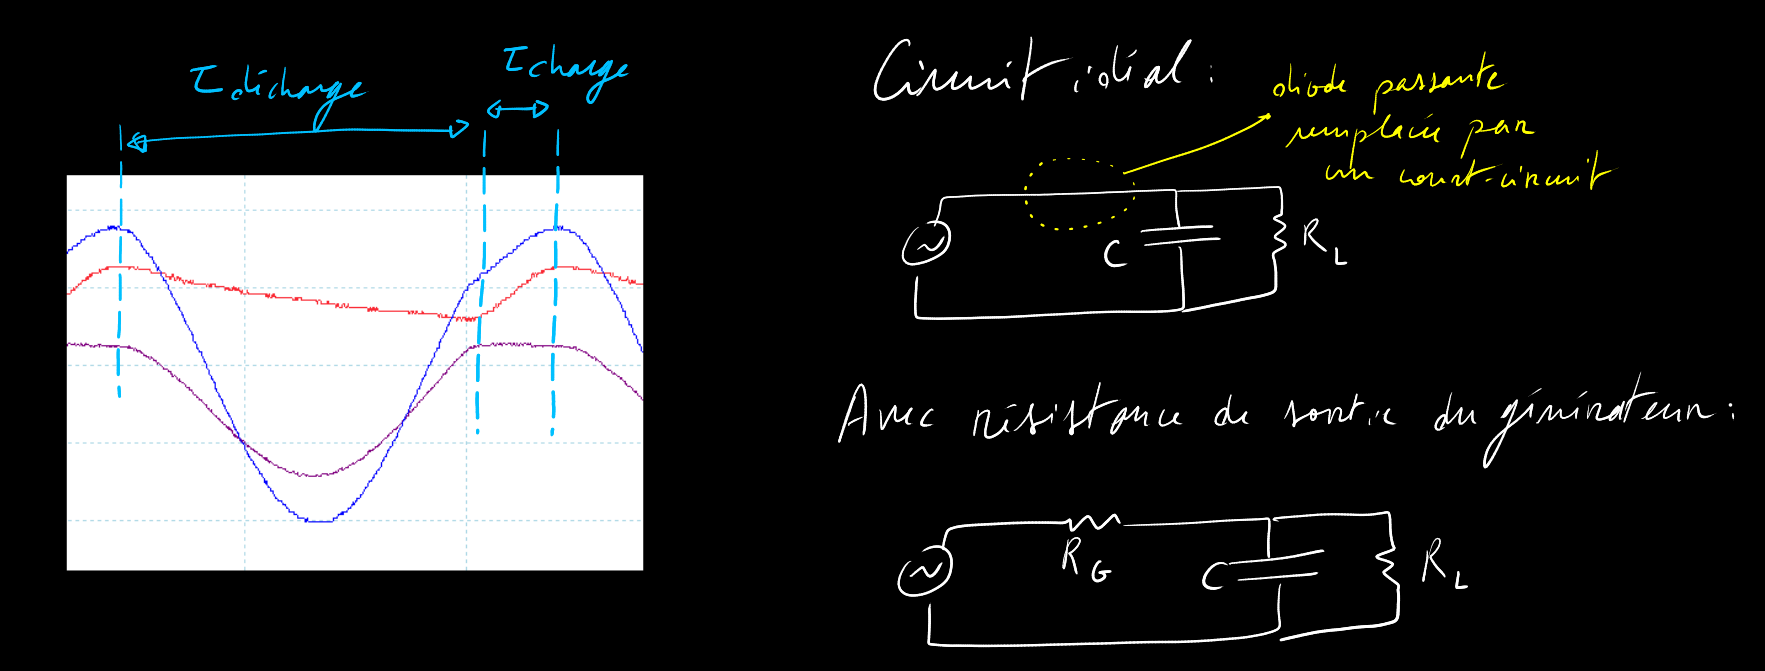 τ décharge
τ charge
Circuit idéal :
diode passante
remplacée par
un court-circuit
C
R_L
Avec résistance de sortie du générateur :
R_G
C
R_L